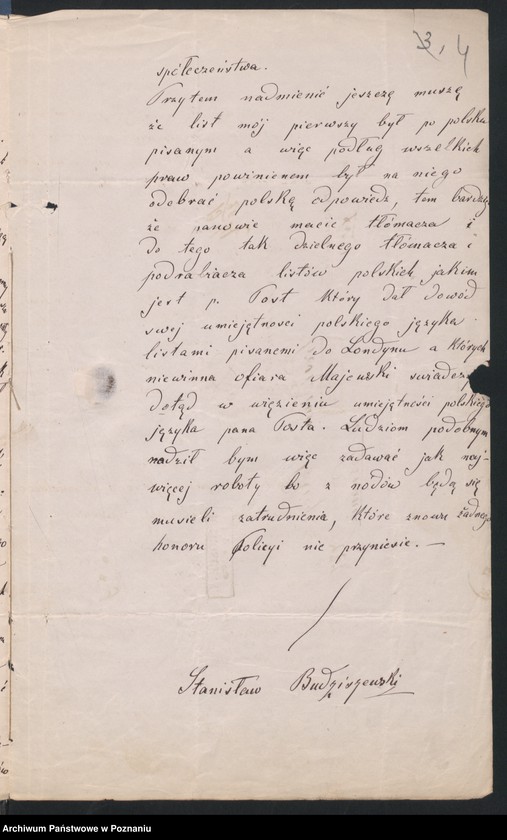 3, 4
społeczeństwa.
Przytem nadmienić jeszczę muszę
że list mój pierwszy był po polsku
pisanym a więc podług wszelkich
praw powinienem był na niego
odebrać polską odpowiedz, tem bardziej
że panowie macie tłómacza i
do tego tak dzielnego tłómacza i
podrabiacza listów polskich jakim
jest p. Post który dał dowód
swej umiejętności polskiego języka
listami pisanemi do Londynu a których
niewinna ofiara Majewski świadczy
dotąd w więzieniu umiejętności polskiego
języka pana Posta. Ludziom podobnym
radził bym więc zadawać jak naj-
więcej roboty bo z nodów będą się
musieli zatrudnienia, które znowu żadnego
honoru Policyi nie przyniesie. —
Stanisław Budziszewski
Archiwum Państwowe w Poznaniu